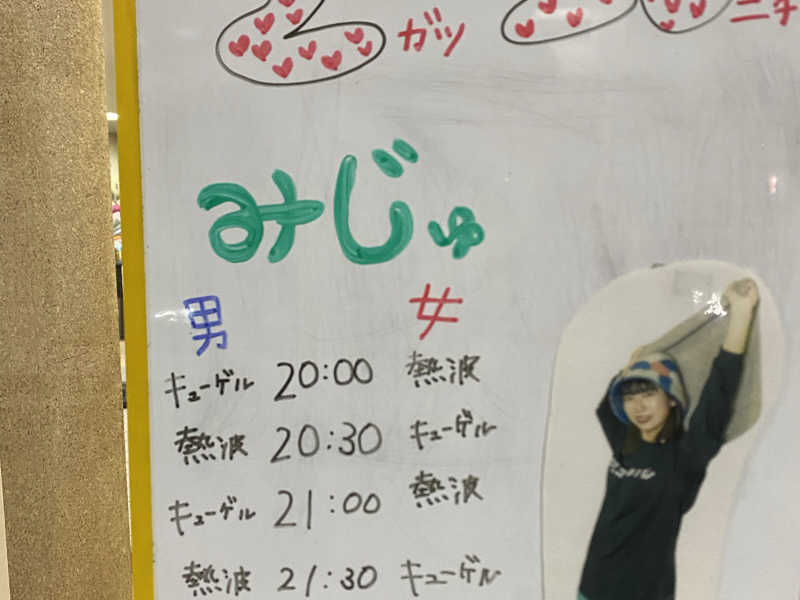 ガッ ニチ
みじゅ
男 女
キューゲル 20:00 熱波
熱波 20:30 キューゲル
キューゲル 21:00 熱波
熱波 21:30 キューゲル